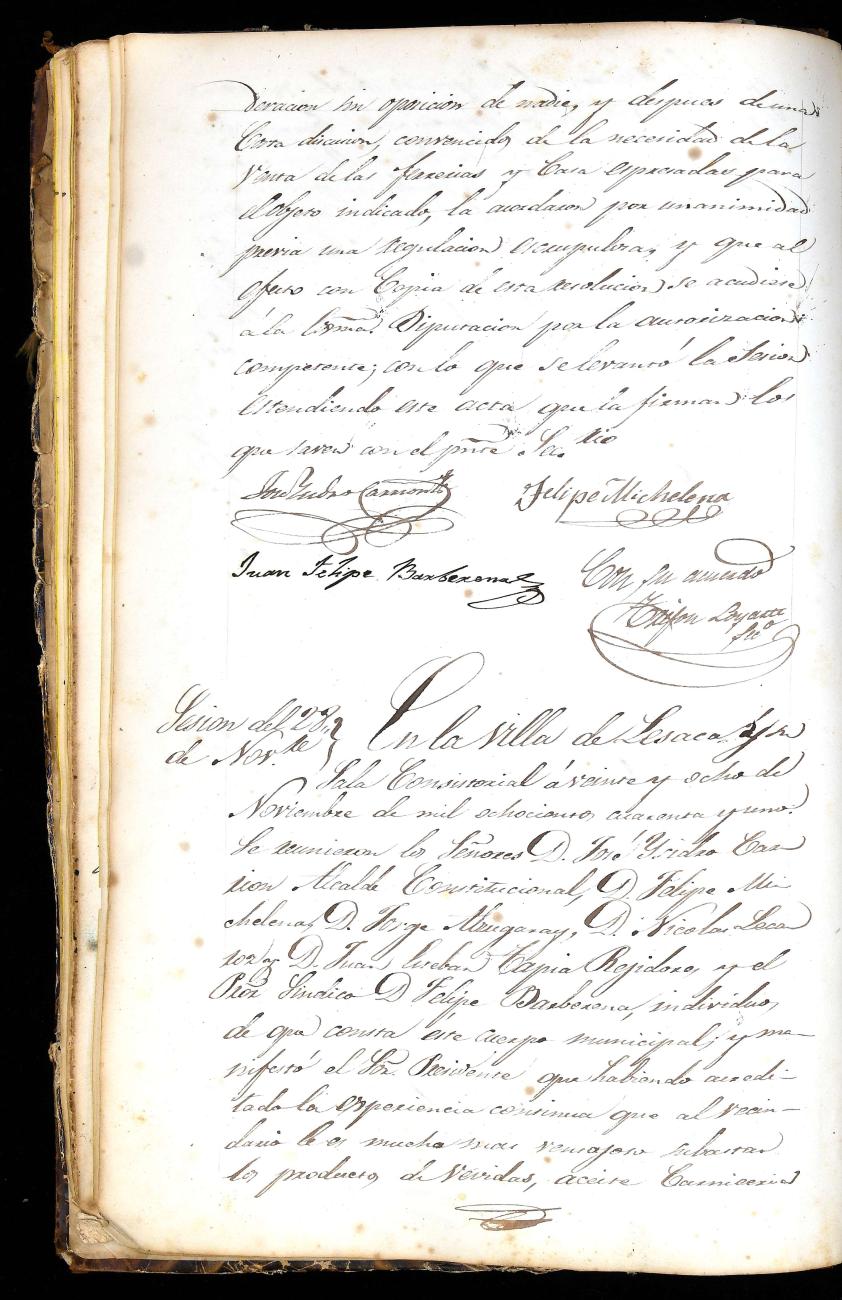 deracion sin oposicion de nadie, y despues de una
Corta discusion, convencidos de la necesidad de la
Venta de las ferrerias y Casa espresadas para
el objeto indicado, la acordaron por unanimidad
previa una regulacion escrupulosa, y que al
efecto con Copia de esta resolucion se acudiese
á la Exma. Diputacion por la autorizacion
competente; con lo que se levantó la Sesion
estendiendo este acta que la firman los
que saven con el pnte Sec.rio
Felipe Michelena
Juan Felipe Barberena
Con su acuerdo
Srio
Sesion del 28,,
de Nov.bre
En la villa de Lesaca y su
Sala Consistorial á veinte y ocho de
Noviembre de mil ochocientos cuarenta y uno.
Se reunieron los Señores D. José Ysidro Car-
rion Alcalde Constitucional, D. Felipe Mi-
chelena, D. Jorge Alzugaray, D. Nicolas Leca-
roz y D. Juan Esteban Tapia Rejidores, y el
Pror Sindico D Felipe Barberena, individuos
de que consta este cuerpo municipal; y ma-
nifestó el Sor. Presidente que habiendo acredi-
tado la esperiencia continua que al vecin-
dario le es mucho mas ventajoso subastar
los productos de Vevidas, aceite Carniceria